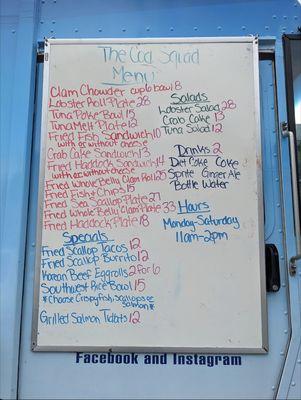 The Cod Squad
Menu
Clam Chowder cup 6 bowl 8
Lobster Roll Plate 28
Tuna Poke Bowl 15
Tuna Melt Plate 12
Fried Fish Sandwich 10
with or without cheese
Crab Cake Sandwich 13
Fried Haddock Sandwich 14
with or without cheese
Fried Whole Belly Clam Roll 25
Fried Fish + Chips 15
Fried Sea Scallop Plate 27
Fried Whole Belly Clam Plate 33
Fried Haddock Plate 18
Specials
Fried Scallop Tacos 12
Fried Scallop Burrito 12
Korean Beef Eggrolls 2 for 6
Southwest Rice Bowl 15
*Choose Crispy fish, Scallops or
Salmon*
Grilled Salmon Tidbits 12
Salads
Lobster Salad 28
Crab Cake 13
Tuna Salad 12
Drinks 2
Diet Coke Coke
Sprite Ginger Ale
Bottle Water
Hours
Monday-Saturday
11am-2pm
Facebook and Instagram